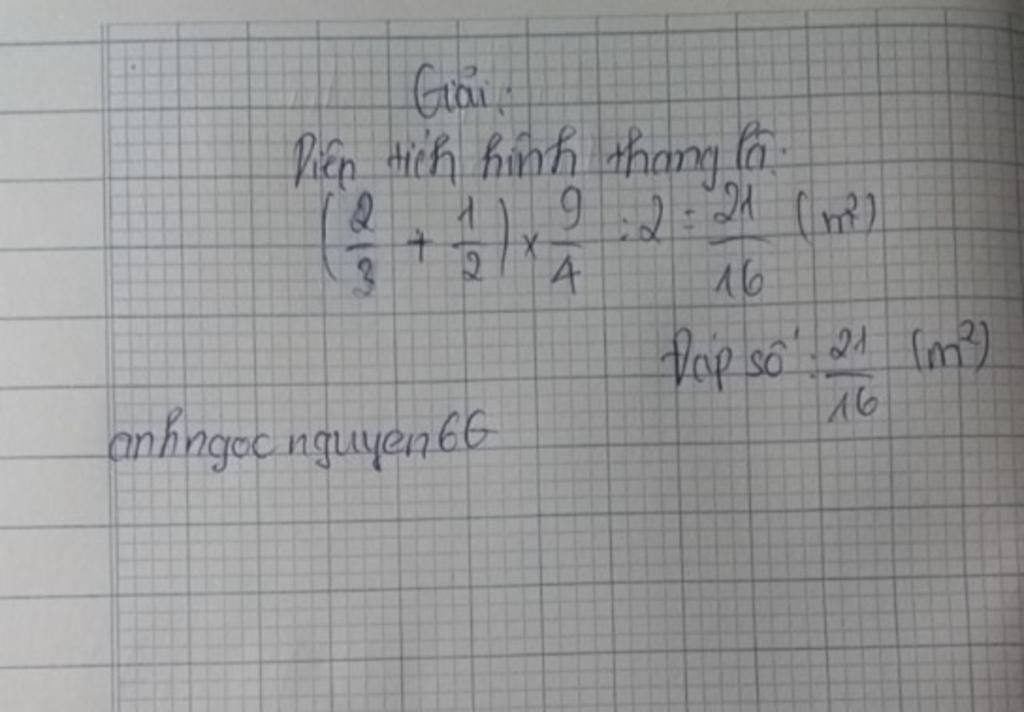 Giải:
Diện tích hình thang là:
(2/3 + 1/2) x 9/4 : 2 = 21/16 (m²)
Đáp số: 21/16 (m²)
anhngoc nguyen66